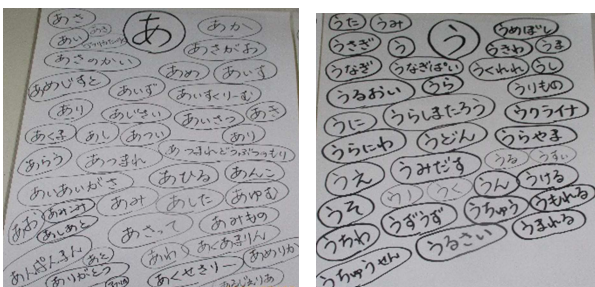 あさ
あ
あか
あい
あさがお
あさのかい
あめ
あいす
あめじすと
あいず
あいすくりーむ
あり
あじさい
あいさつ
あき
あくま
あし
あつい
あり
あらう
あつまれ
あつまれどうぶつのもり
あいあいがさ
あひる
あんこ
あみ
あした
あゆむ
あお
あみこわ
あしあと
あさって
あみもの
あんぱんまん
あと
あわ
あくあまりん
ありがとう
あくせきりー
あめりか
うた
うみ
う
うめぼし
うさぎ
う
うきわ
うま
うなぎ
うなぎぱい
うくれれ
うし
うるおい
うら
うりもの
うに
うらしまたろう
ウクライナ
うらにわ
うどん
うらやま
うえ
うみだす
うる
うすい
うそ
うく
うん
うける
うずうず
うちゅう
うもれる
うちわ
うるさい
うまれる
うちゅうせん